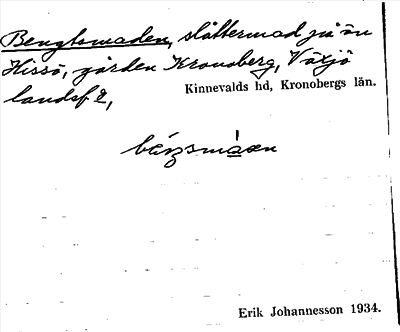 Bengtsmaden, slåttermad på ön
Hissö, gården Kronoberg, Växjö
landsf 2,
Kinnevalds hd, Kronobergs län.
Erik Johannesson 1934.